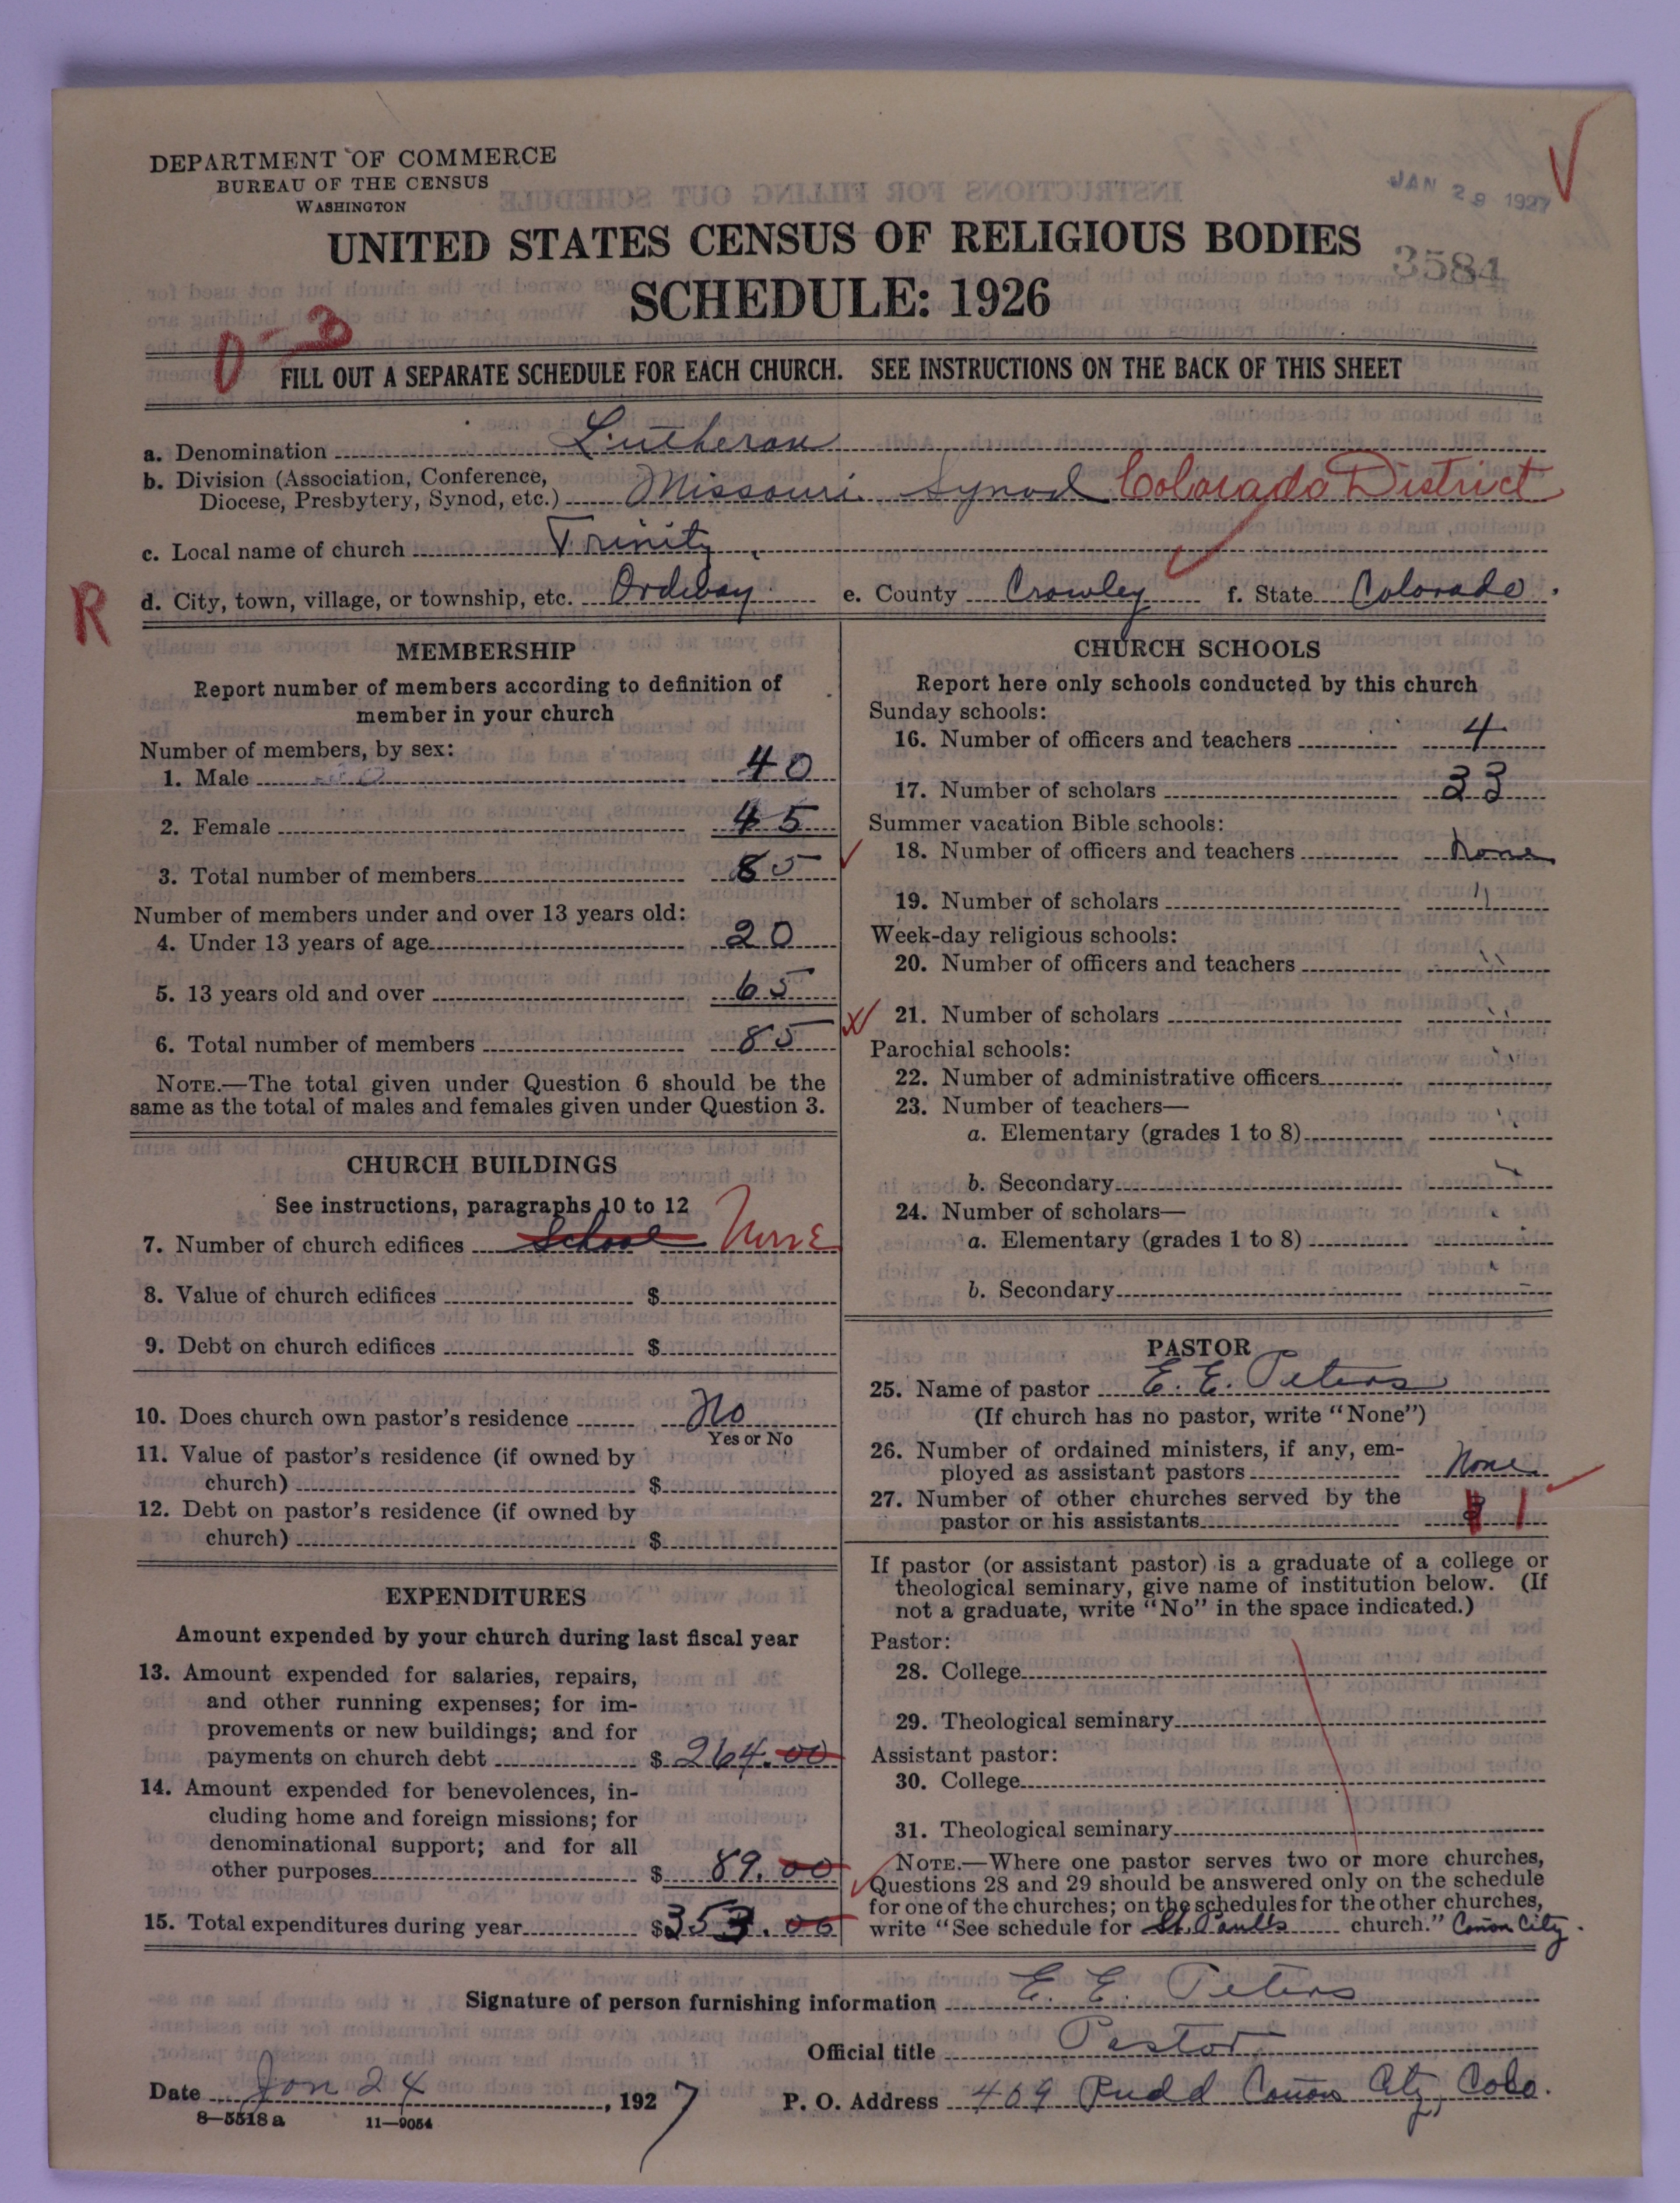 DEPARTMENT OF COMMERCE
BUREAU OF THE CENSUS
WASHINGTON
JAN 29 1927
UNITED STATES CENSUS OF RELIGIOUS BODIES
3584
SCHEDULE: 1926
FILL OUT A SEPARATE SCHEDULE FOR EACH CHURCH. SEE INSTRUCTIONS ON THE BACK OF THIS SHEET
a. Denomination Lutheran
b. Division (Association, Conference,
Diocese, Presbytery, Synod, etc.) Missouri Synod Colorado District
c. Local name of church Trinity
R
d. City, town, village, or township, etc. Ordway e. County Crowley f. State Colorado.
MEMBERSHIP
Report number of members according to definition of
member in your church
Number of members, by sex:
1. Male 40
2. Female 45
3. Total number of members 85
Number of members under and over 13 years old:
4. Under 13 years of age 20
5. 13 years old and over 65
6. Total number of members 85
NOTE.—The total given under Question 6 should be the
same as the total of males and females given under Question 3.
CHURCH BUILDINGS
See instructions, paragraphs 10 to 12
7. Number of church edifices School None
8. Value of church edifices $
9. Debt on church edifices $
10. Does church own pastor's residence No
Yes or No
11. Value of pastor's residence (if owned by
church) $
12. Debt on pastor's residence (if owned by
church) $
EXPENDITURES
Amount expended by your church during last fiscal year
13. Amount expended for salaries, repairs,
and other running expenses; for im-
provements or new buildings; and for
payments on church debt $ 264.00
14. Amount expended for benevolences, in-
cluding home and foreign missions; for
denominational support; and for all
other purposes $ 89.00
15. Total expenditures during year $353.00
CHURCH SCHOOLS
Report here only schools conducted by this church
Sunday schools:
16. Number of officers and teachers 4
17. Number of scholars 33
Summer vacation Bible schools:
18. Number of officers and teachers None
19. Number of scholars "
Week-day religious schools:
20. Number of officers and teachers "
21. Number of scholars "
Parochial schools:
22. Number of administrative officers
23. Number of teachers—
a. Elementary (grades 1 to 8)
b. Secondary
24. Number of scholars—
a. Elementary (grades 1 to 8)
b. Secondary
PASTOR
25. Name of pastor E. E. Peters
(If church has no pastor, write "None")
26. Number of ordained ministers, if any, em-
ployed as assistant pastors None
27. Number of other churches served by the
pastor or his assistants 1
If pastor (or assistant pastor) is a graduate of a college or
theological seminary, give name of institution below. (If
not a graduate, write "No" in the space indicated.)
Pastor:
28. College
29. Theological seminary
Assistant pastor:
30. College
31. Theological seminary
NOTE.—Where one pastor serves two or more churches,
Questions 28 and 29 should be answered only on the schedule
for one of the churches; on the schedules for the other churches,
write "See schedule for St. Paul's church." Canon City.
Signature of person furnishing information E. E. Peters
Official title Pastor
Date Jan 24, 1927 P. O. Address 409 Rudd Canon City, Colo.
8—5518a 11—9054